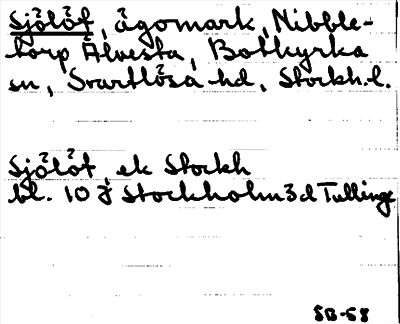 Sjölöt, ägomark, Nibble-
torp Älvesta, Botkyrka
sn, Svartlösa hd, Stockh.l.
Sjölöt, ek Stockh
bl. 10 J Stockholm 3d Tullinge
SB-58